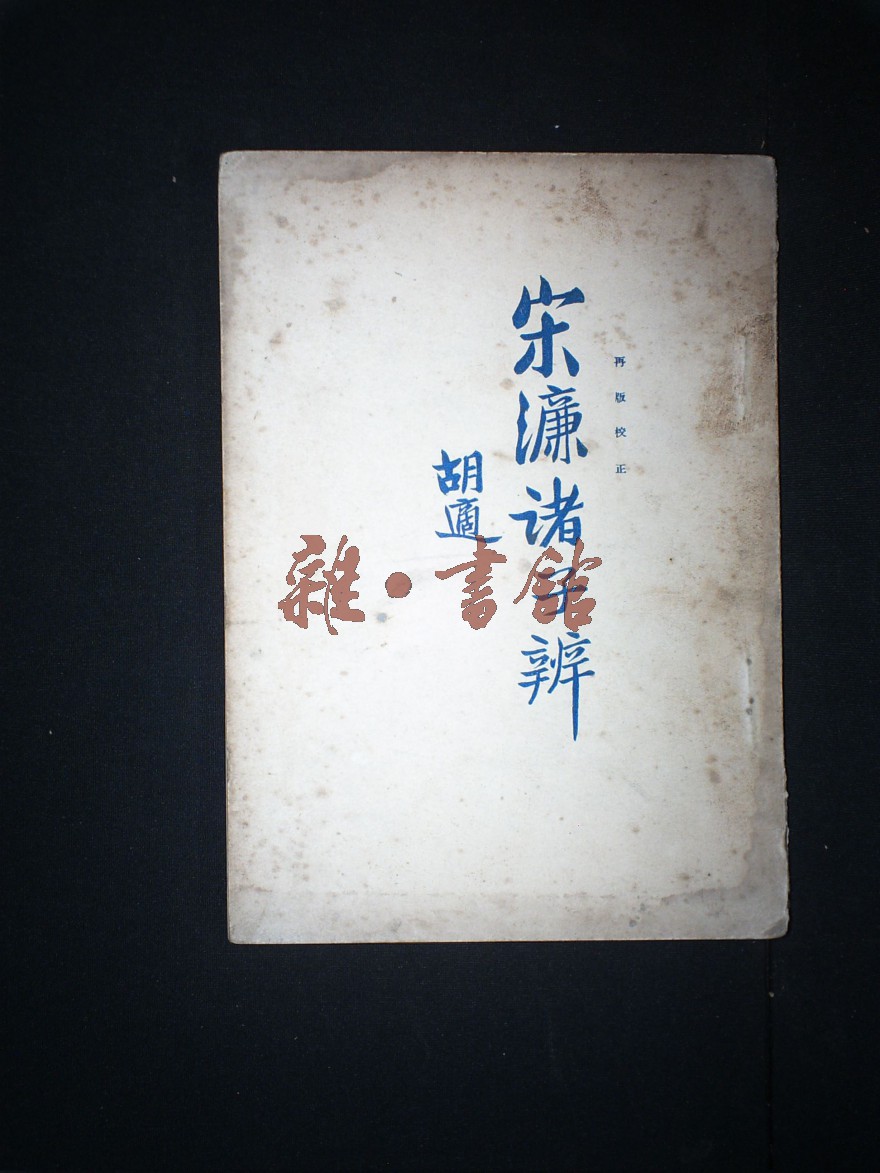 再版校正
宋濂諸子辨
胡適
雜·書館